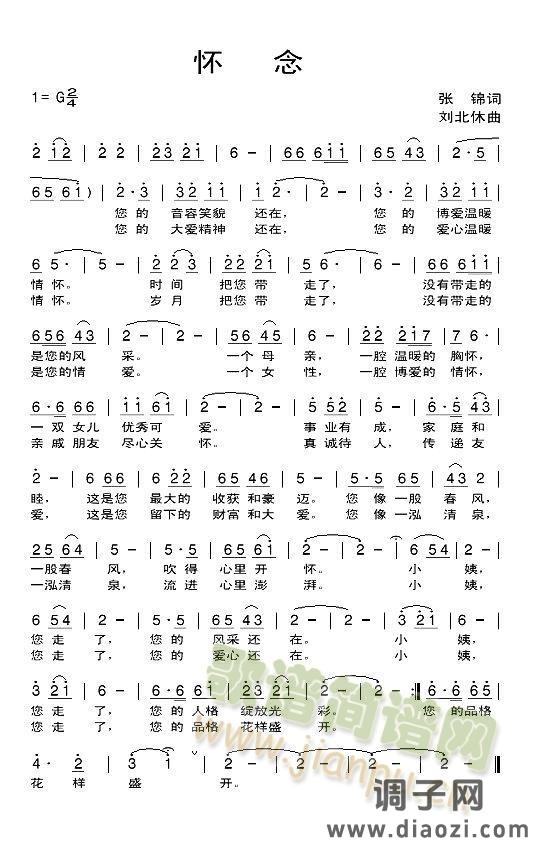 怀 念
1= G 2/4
张 锦词
刘北休曲
2 1̇2̇ | 2̇ - | 2̇ 2̇ | 2̇3̇ 2̇1̇ | 6 - | 66 61̇1̇ | 65 43 | 2 · 5 |
65 61̇) | 2̇ · 3̇ | 3̇2̇ 1̇1̇ | 1̇ 2̇ · | 2̇ - | 3̇ · 2̇ | 3̇2̇ 1̇1̇ |
您 的 音容笑貌 还在， 您 的 博爱温暖
您 的 大爱精神 还在， 您 的 爱心温暖
6 5 · | 5 - | 2̇ 2̇ 3̇ | 2̇2̇ 2̇1̇ | 5 6 · | 6 - | 66 61̇1̇ |
情怀。 时 间 把您 带 走了， 没有带走的
情怀。 岁 月 把您 带 走了， 没有带走的
656 43 | 2 - | 2 - | 66 45 | 6 - | 2̇ 2̇ | 2̇1̇7 | 6 - |
是您的风 采。 一个 母 亲， 一腔 温暖的 胸怀，
是您的情 爱。 一个 女 性， 一腔 博爱的 情怀，
6 · 6 66 | 1̇1̇ 61̇ | 2̇ - | 2̇ - | 5 52̇ | 5 - | 6 · 5 | 43 |
一 双 女儿 优秀可 爱。 事业有 成， 家 庭 和
亲 戚 朋友 尽心关 怀。 真诚待 人， 传 递 友
2̇ - | 6 66 | 6 2̇2̇ | 65 46 | 5 - | 5 · 5 | 65 | 43 | 2 - |
睦， 这是您 最大的 收获 和豪 迈。 您 像 一股 春 风，
爱， 这是您 留下的 财富 和大 爱。 您 像 一泓 清 泉，
25 64 | 5 - | 5 · 5 | 65 61̇ | 2̇ - | 2̇ - | 6 54 | 2 - |
一股春 风， 吹 得 心里 开 怀。 小 姨，
一泓清 泉， 流 进 心里 澎 湃。 小 姨，
6 54 | 2 - | 5 · 5 | 65 61̇ | 2̇ - | 2̇ - | 3̇ 2̇1̇ | 6 - |
您 走 了， 您 的 风采 还 在。 小 姨，
您 走 了， 您 的 爱心 还 在。 小 姨，
3̇ 2̇1̇ | 6 - | 6 · 6 61̇ | 2̇3̇ 2̇1̇ | 2̇ - | 2̇ - :‖ 6 · 6 65 |
您 走 了， 您 的 人格 绽放光 彩。 您 的品格
您 走 了， 您 的 品格 花样盛 开。
4 · 2̇ | 3̇ 1̇ | 2̇ - | 2̇ - | 2̇ - | 2̇ - ‖
花 样 盛 开。
歌谱简谱网
www.jianpu.cn
调子网
www.diaozi.com